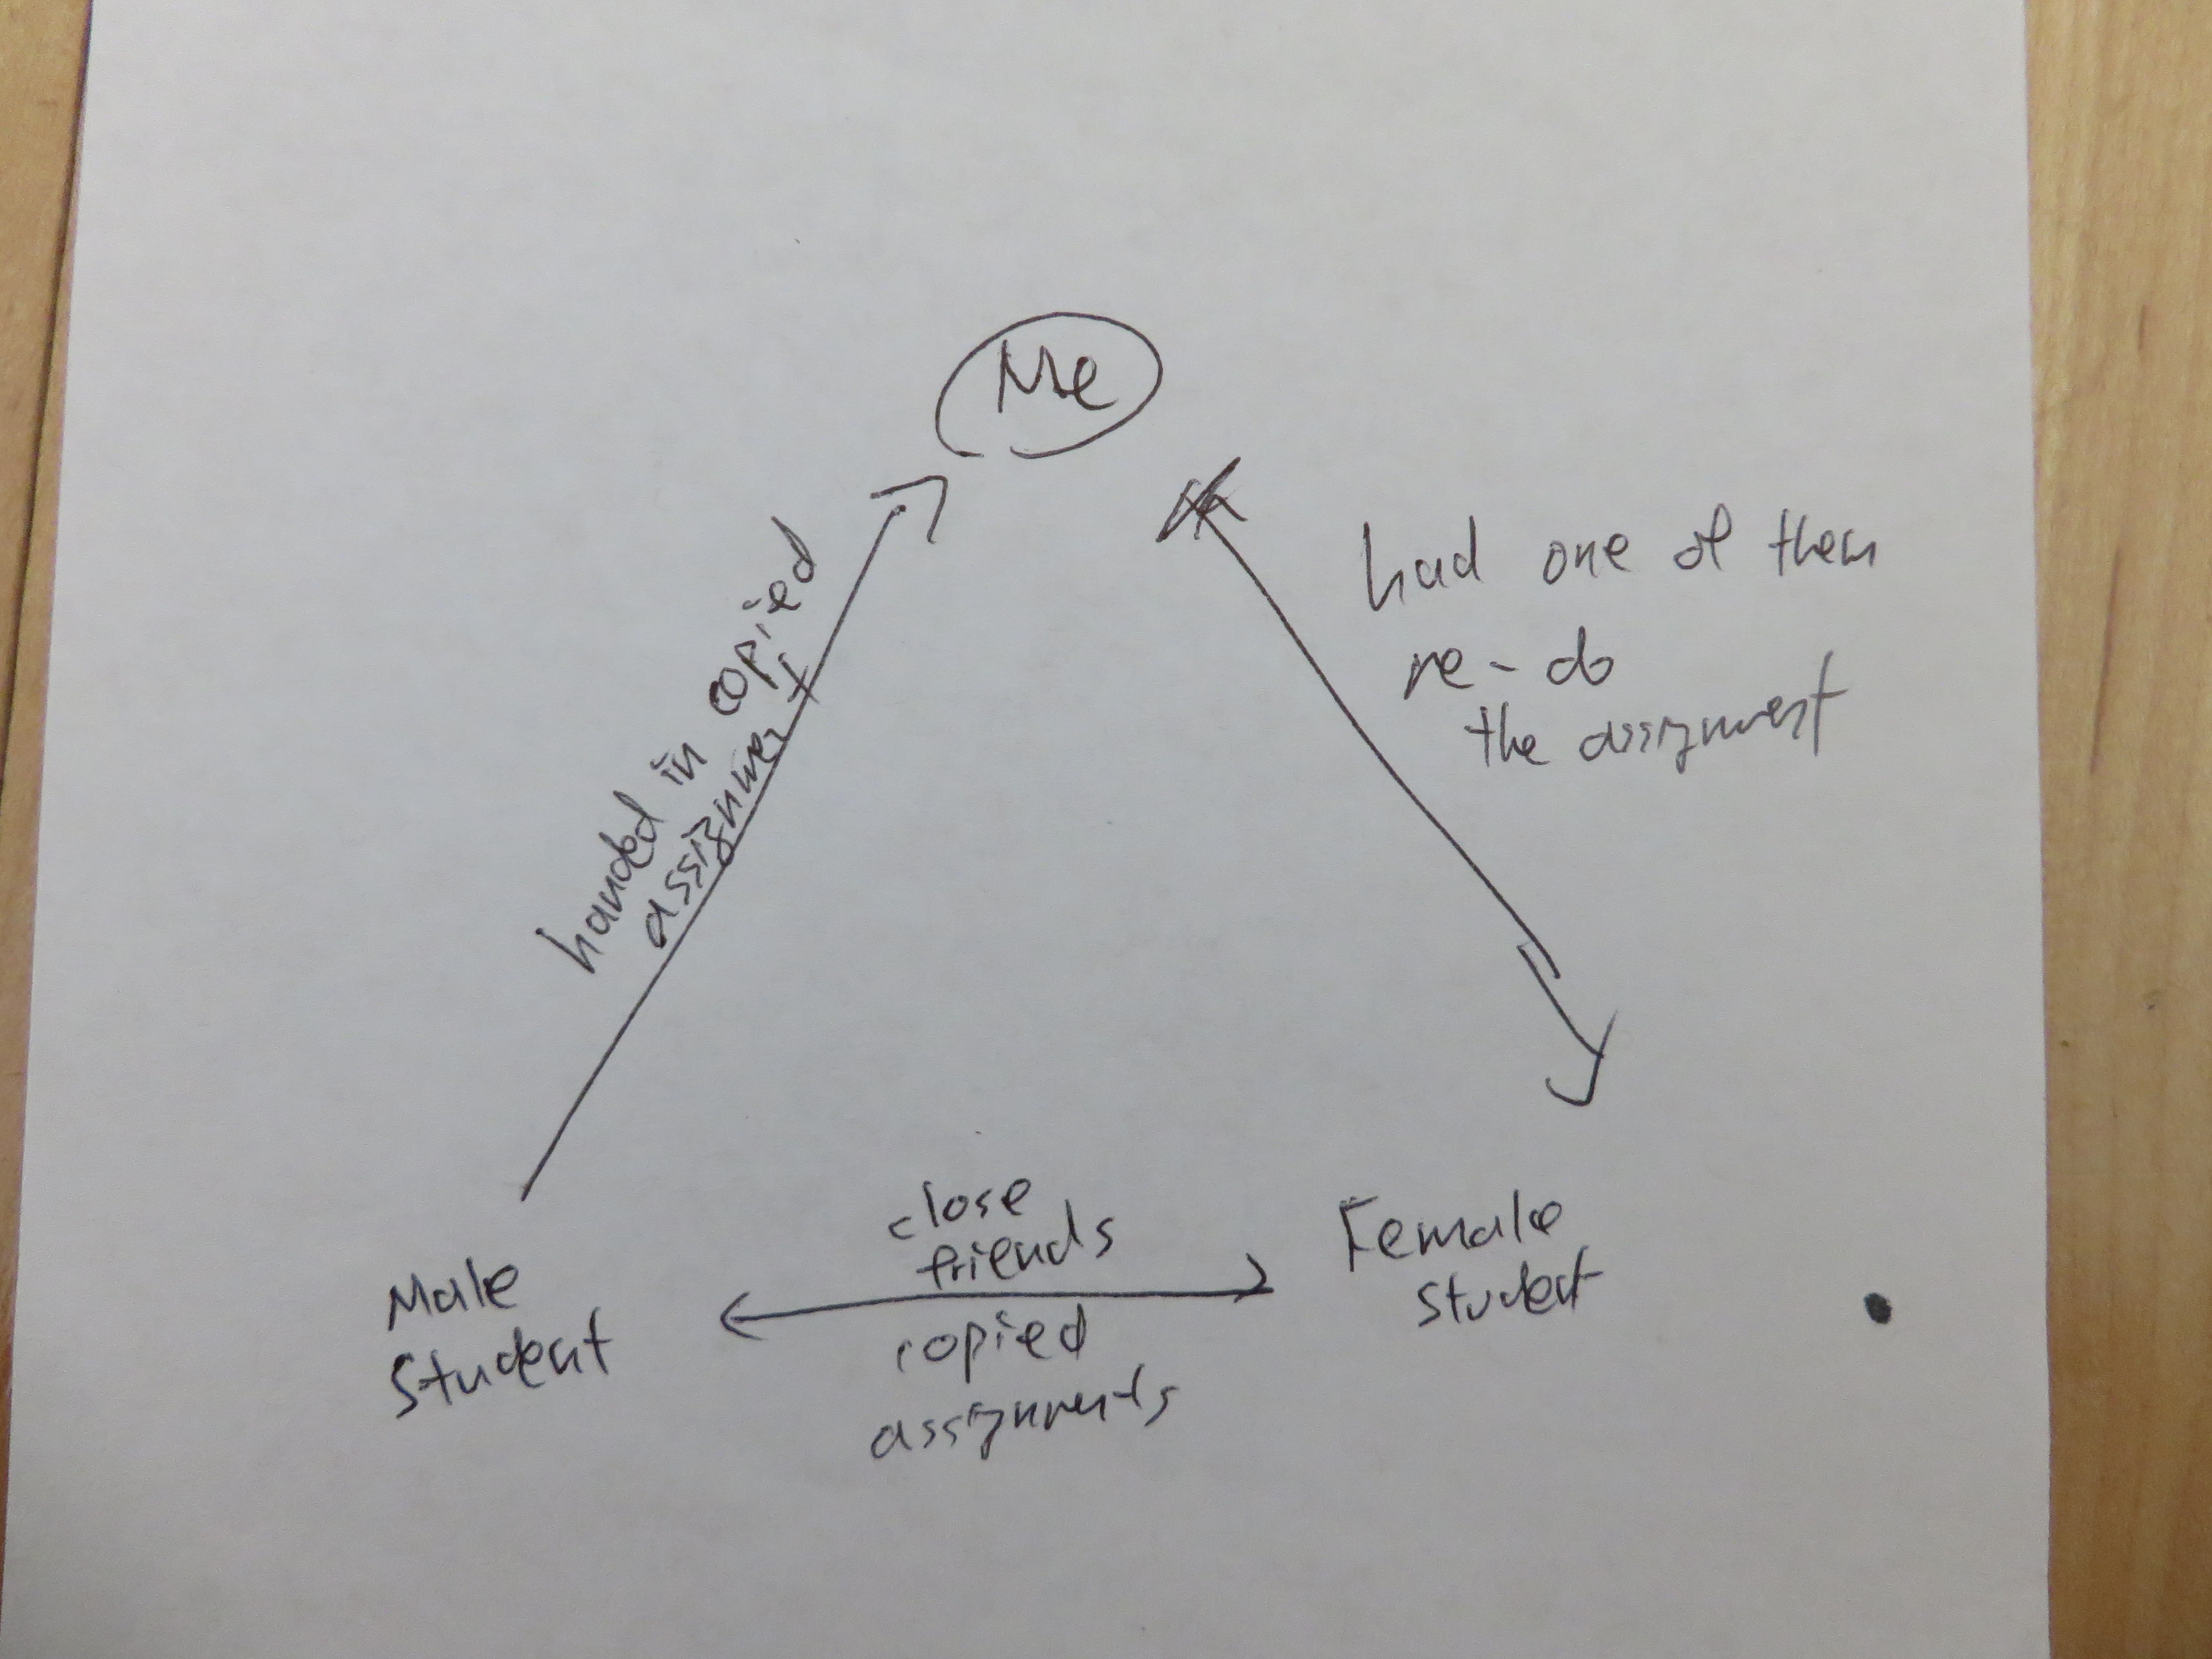 Me
handed in copied
assignment
had one of them
re-do
the assignment
close
friends
copied
assignments
Male
Student
Female
Student